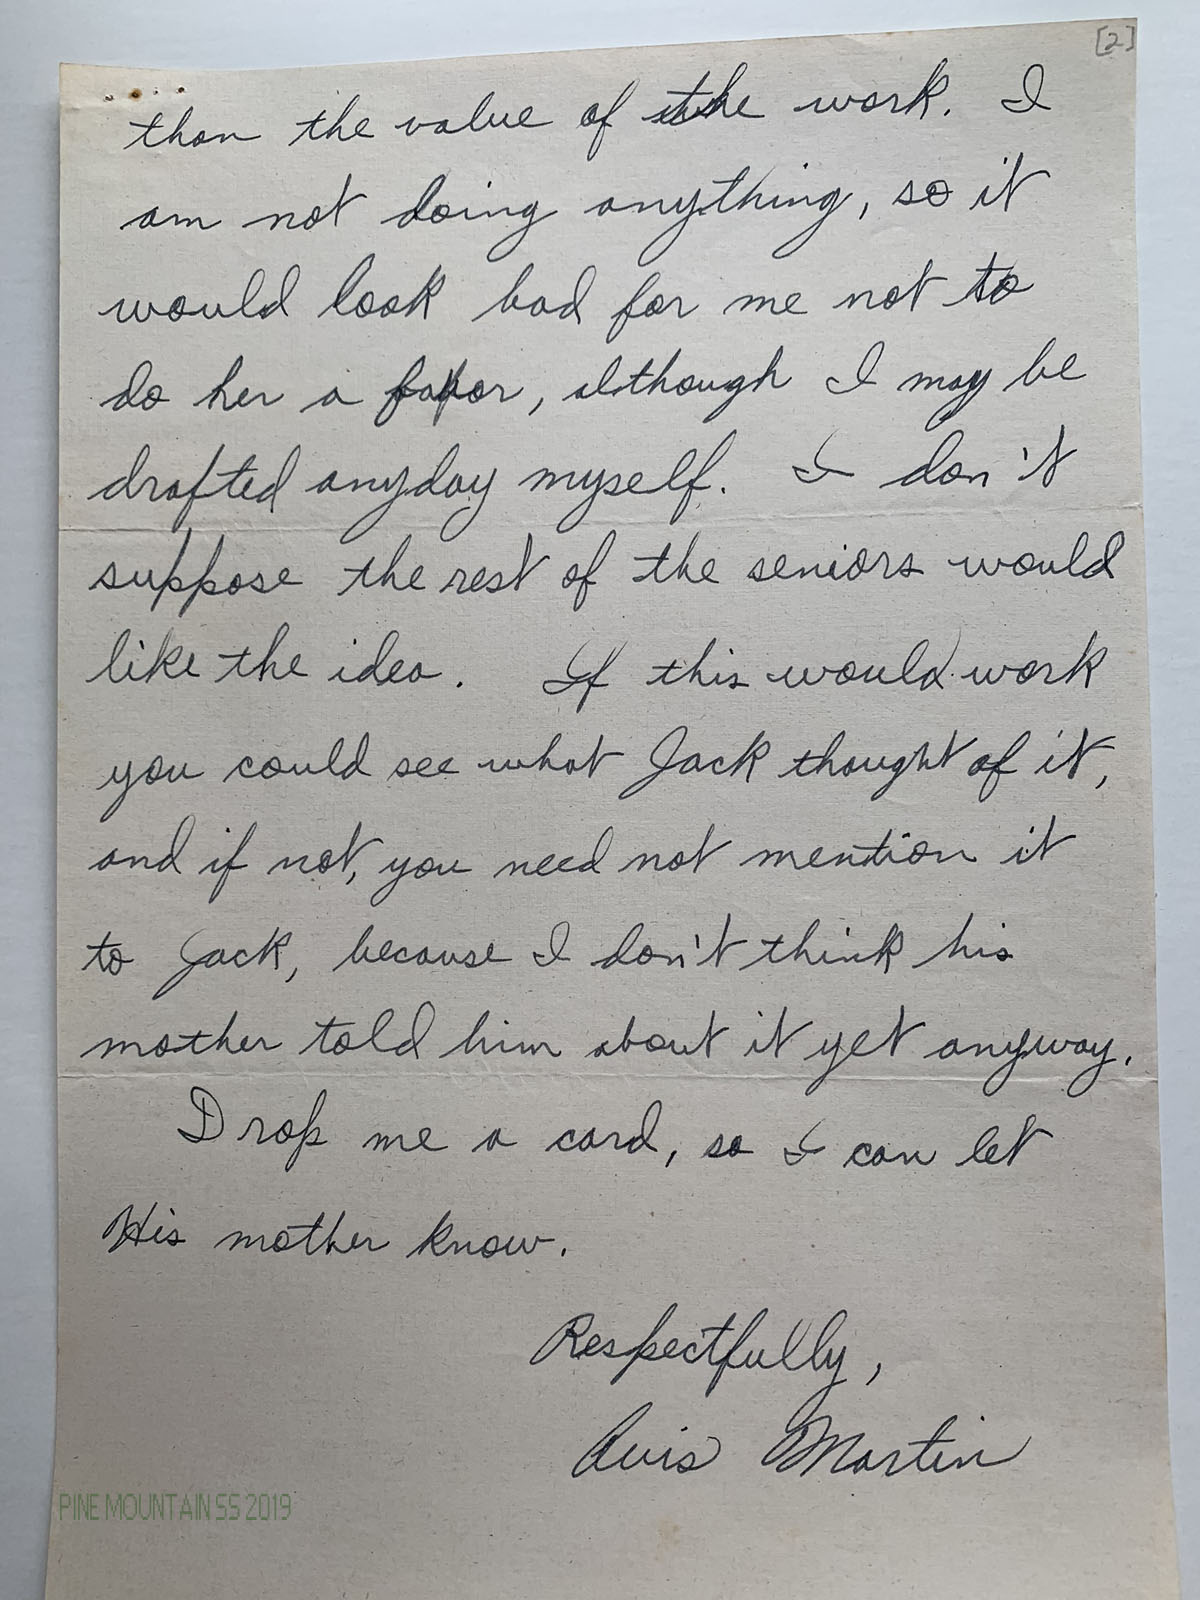 [2]
than the value of the work. I
am not doing anything, so it
would look bad for me not to
do her a favor, although I may be
drafted anyday myself. I don't
suppose the rest of the seniors would
like the idea. If this would work
you could see what Jack thought of it,
and if not, you need not mention it
to Jack, because I don't think his
mother told him about it yet anyway.
Drop me a card, so I can let
His mother know.
Respectfully,
Avis Martin
PINE MOUNTAIN SS 2019